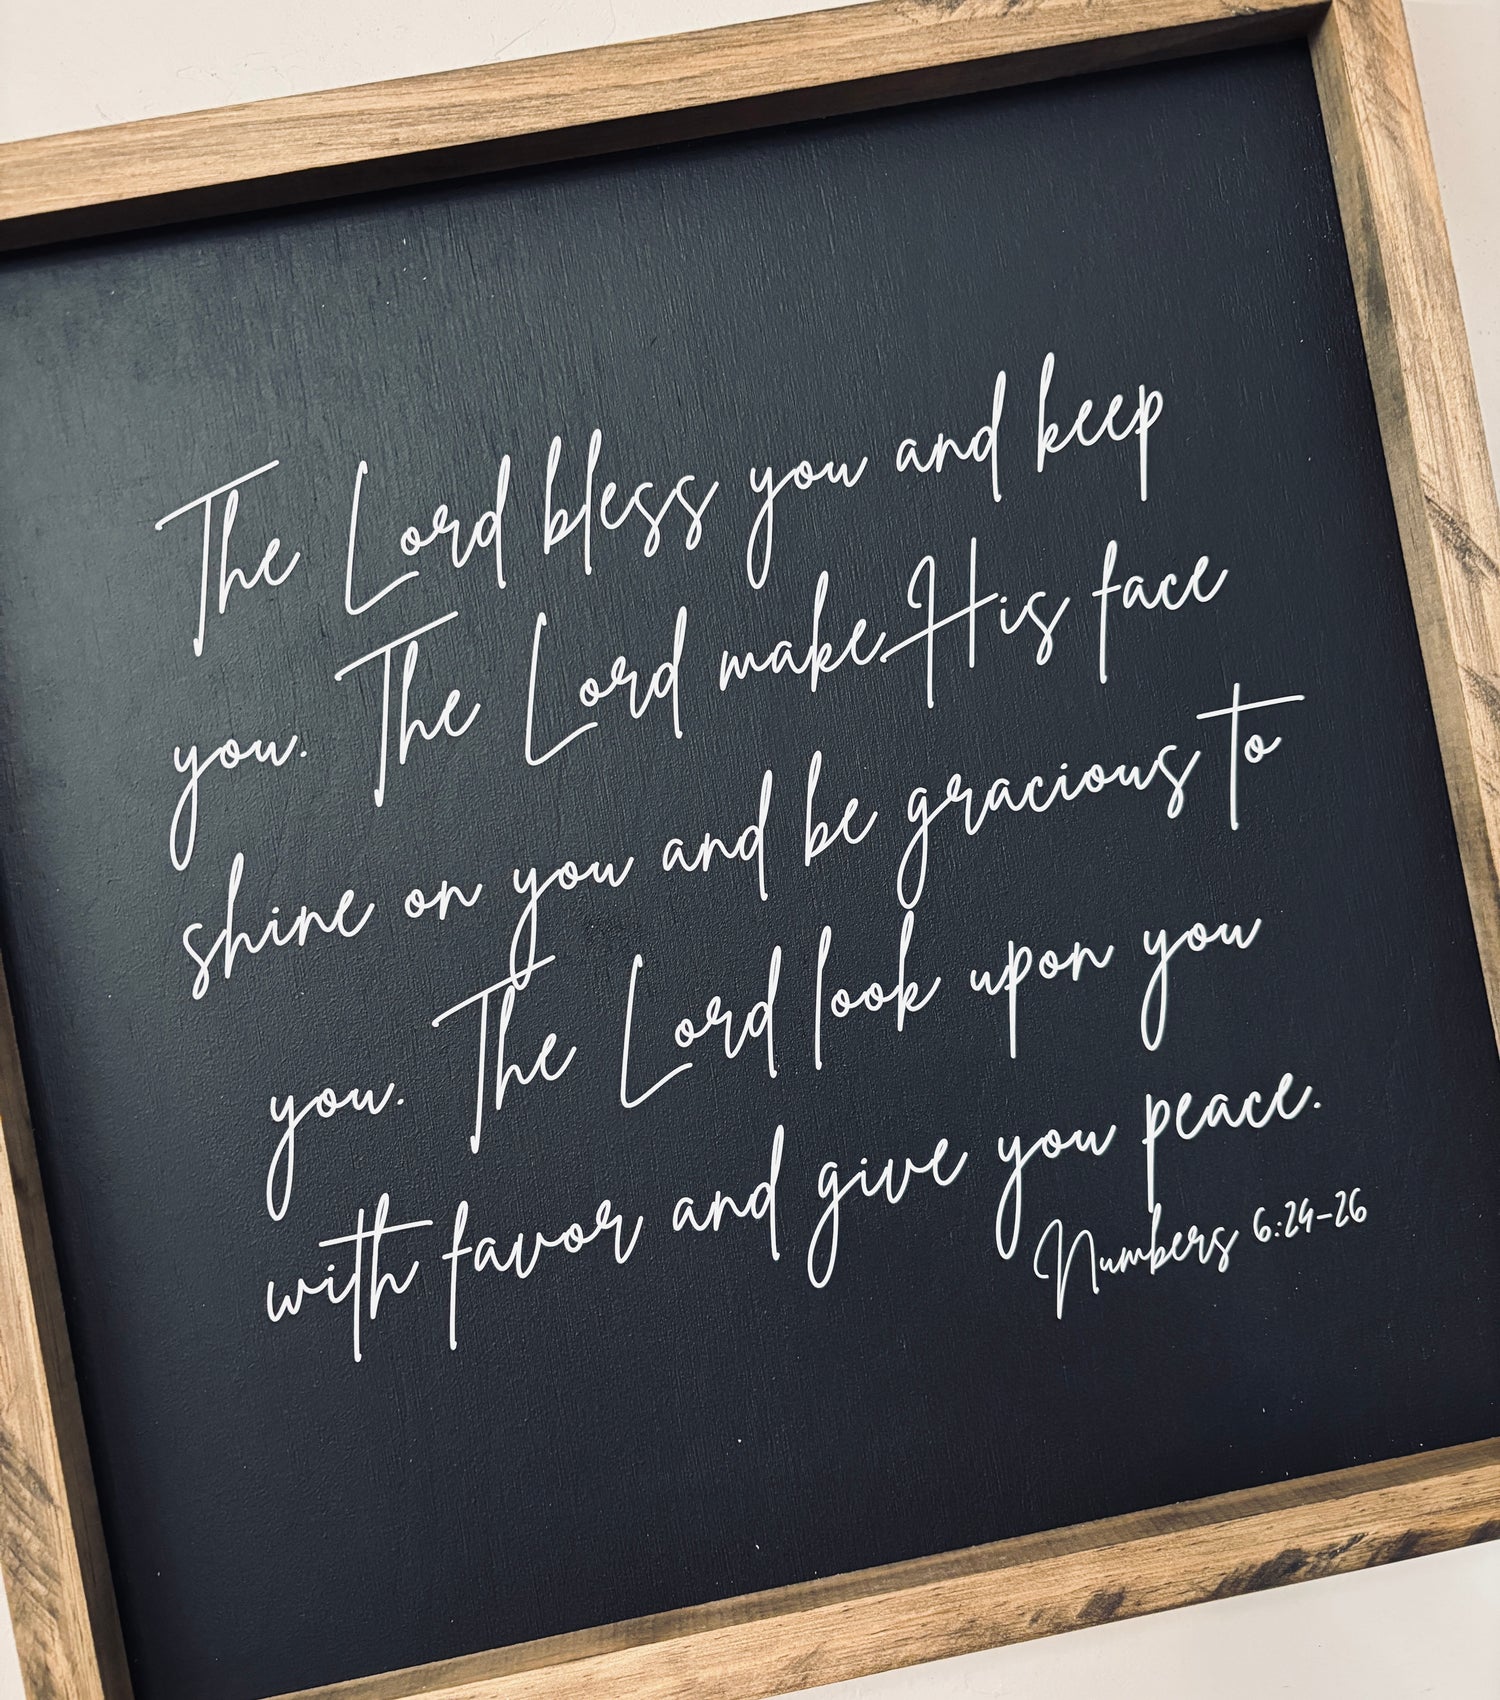 The Lord bless you and keep
you. The Lord make His face
shine on you and be gracious to
you. The Lord look upon you
with favor and give you peace.
Numbers 6:24-26